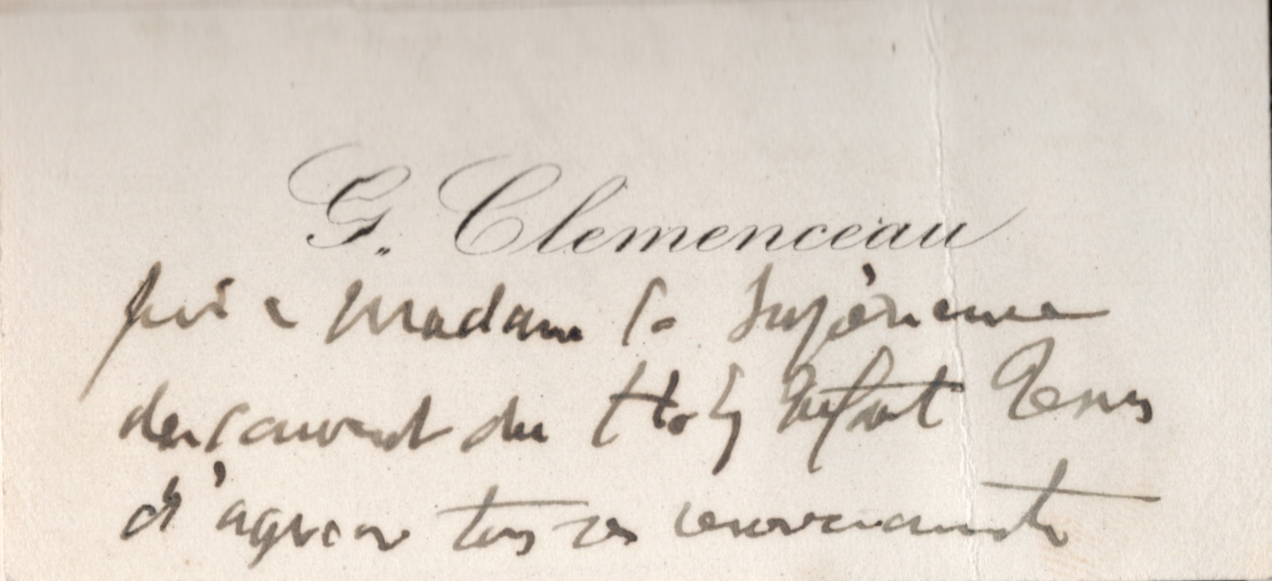 G. Clemenceau
prie Madame la Supérieure
du couvent du Holy Infant Jesus
d'agréer tous ses remerciements